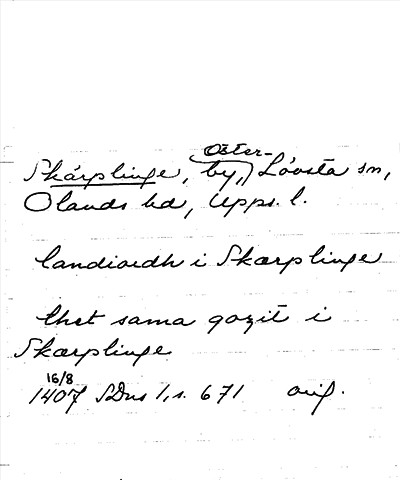 Öster-
Skärplinge, by, Lövsta sn,
Olands hd, Upps. l.
landiordh i Skærplinge
thet sama gozit i
Skærplinge
16/8
1407 SDns 1, s. 671 orig.